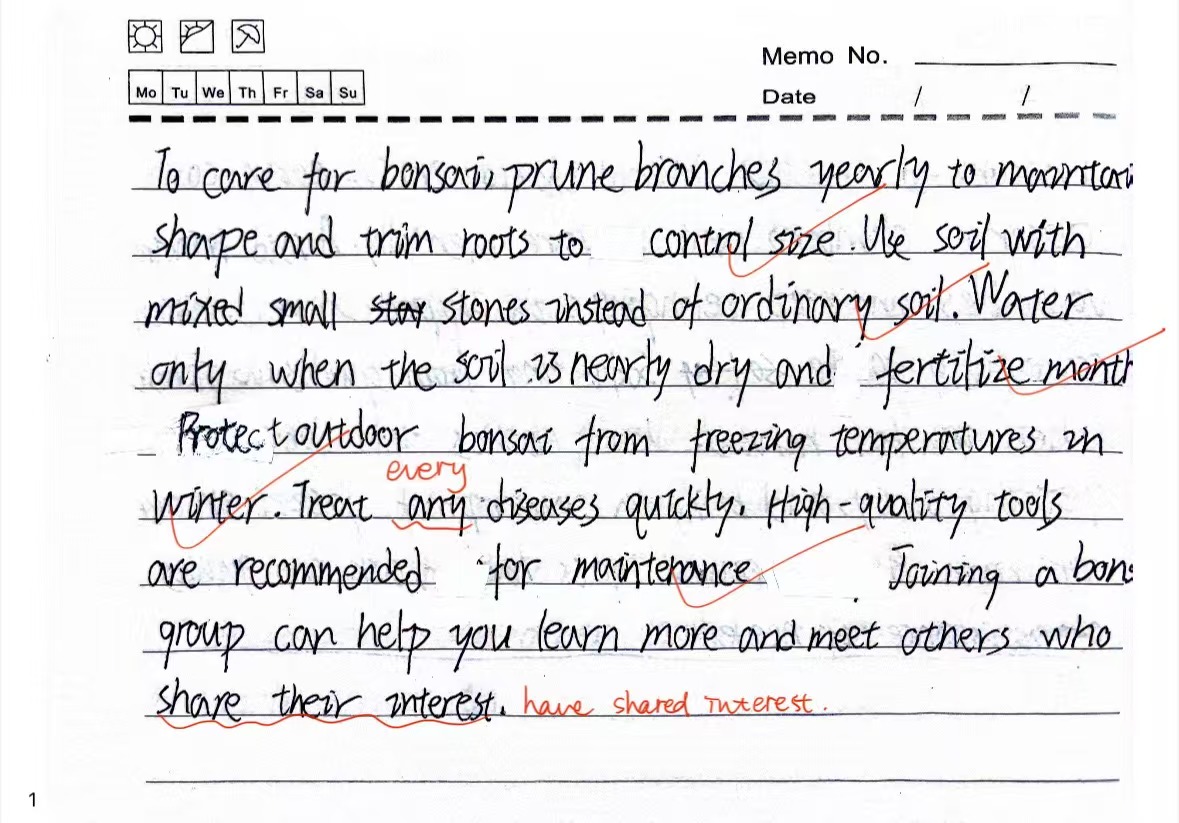 Memo No.
Mo Tu We Th Fr Sa Su
Date / /
To care for bonsai, prune branches yearly to maintai
shape and trim roots to control size. Use soil with
mixed small stones instead of ordinary soil. Water
only when the soil is nearly dry and fertilize month
Protect outdoor bonsai from freezing temperatures in
every
winter. Treat any diseases quickly. High-quality tools
are recommended for maintenance. Joining a bons
group can help you learn more and meet others who
share their interest. have shared interest.
1